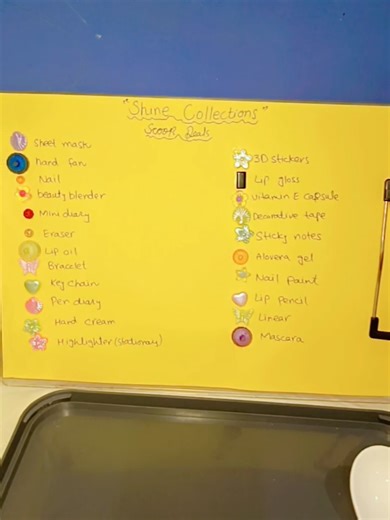 "Shine Collections"
Scoop Deals
Sheet mask
hand fan
Nail
beauty blender
Mini diary
Eraser
Lip oil
Bracelet
Key chain
Pen diary
Hand cream
Highlighter (stationary)
3D stickers
Lip gloss
Vitamin E capsule
Decorative tape
Sticky notes
Alovera gel
Nail paint
Lip pencil
Linear
Mascara